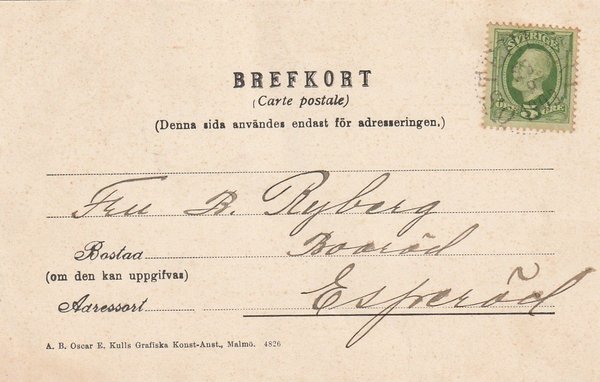 SVERIGE
5
ÖRE
BREFKORT
(Carte postale)
(Denna sida användes endast för adresseringen.)
Fru B. Ryberg
Bostad
(om den kan uppgifvas)
Adressort Esperöd
A. B. Oscar E. Kulls Grafiska Konst-Anst., Malmö. 4826